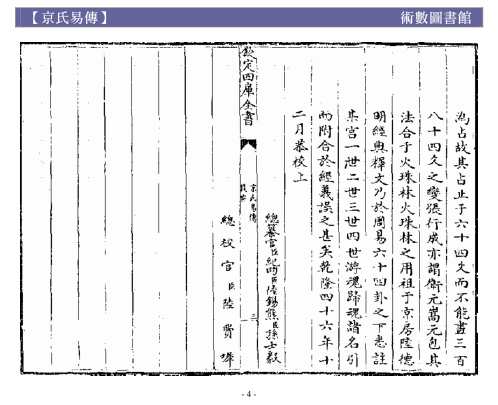 【京氏易傳】
術數圖書館
為占故其占止于六十四爻而不能盡三百
八十四爻之變張行成亦謂衛元嵩元包其
法合于火珠林火珠林之用祖于京房陸德
明經典釋文乃於周易六十四卦之下悉註
某宮一世二世三世四世游魂歸魂諸名引
而附合於經義誤之甚矣乾隆四十六年十
二月恭校上
欽定四庫全書
京氏易傳
提要
三
總纂官臣紀昀臣陸錫熊臣孫士毅
總校官臣陸費墀
- 4 -